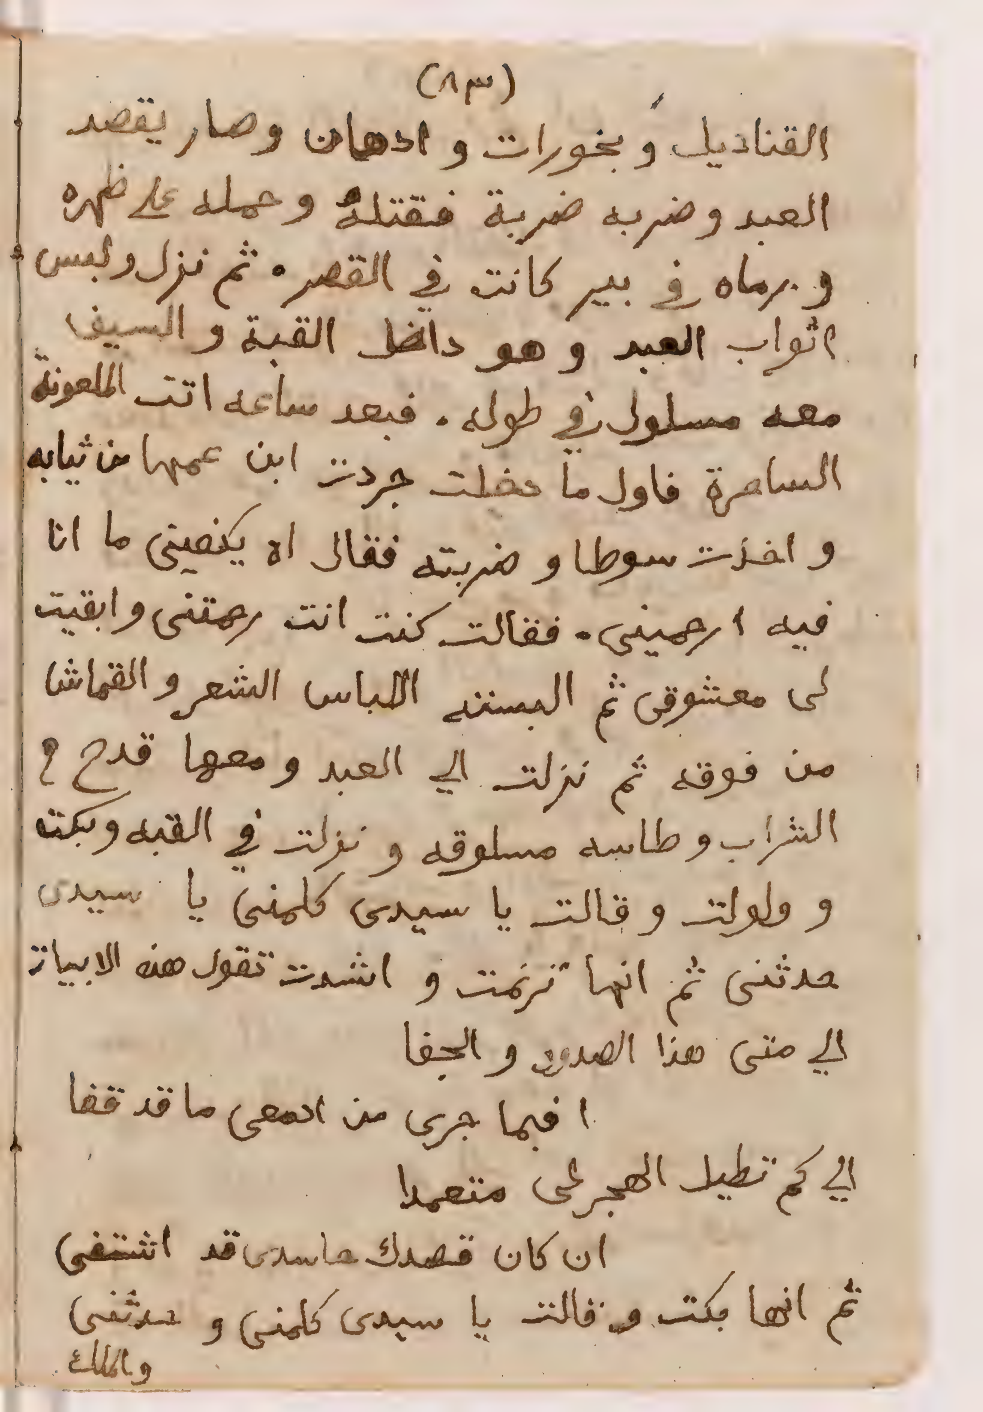 (٨٣)
القناديل و بخورات و ادهان وصار يقصد
العبد وضربه ضربة فقتله وحمله على ظهره
و رماه في بير كانت في القصر ٠ ثم نزل ولبس
اثواب العبد و هو داخل القبة و السيف
معه مسلول في طوله . فبعد ساعه اتت الملعونة
الساحرة فاول ما دخلت جردت ابن عمها من ثيابه
و اخذت سوطا و ضربته فقال اه يكفيني ما انا
فيه ارحميني . فقالت كنت انت رحمتنى وابقيت
لى معشوقى ثم البسته اللباس الشعر و القماش
من فوقه ثم نزلت الي العبد ومعها قدح
الشراب و طاسه مسلوقه و نزلت في القبه وبكت
و ولولت و قالت يا سيدى كلمنى يا سيدى
حدثنى ثم انها ترنمت و انشدت تقول هذه الابيات
الي متى هذا الصدود و الجفا
افبما جرى من ادمعى ما قد قفا
الي كم تطيل الهجر لى متعمدا
ان كان قصدك حاسدى قد اشتفى
ثم انها بكت و قالت يا سيدى كلمنى و حدثنى
والملك